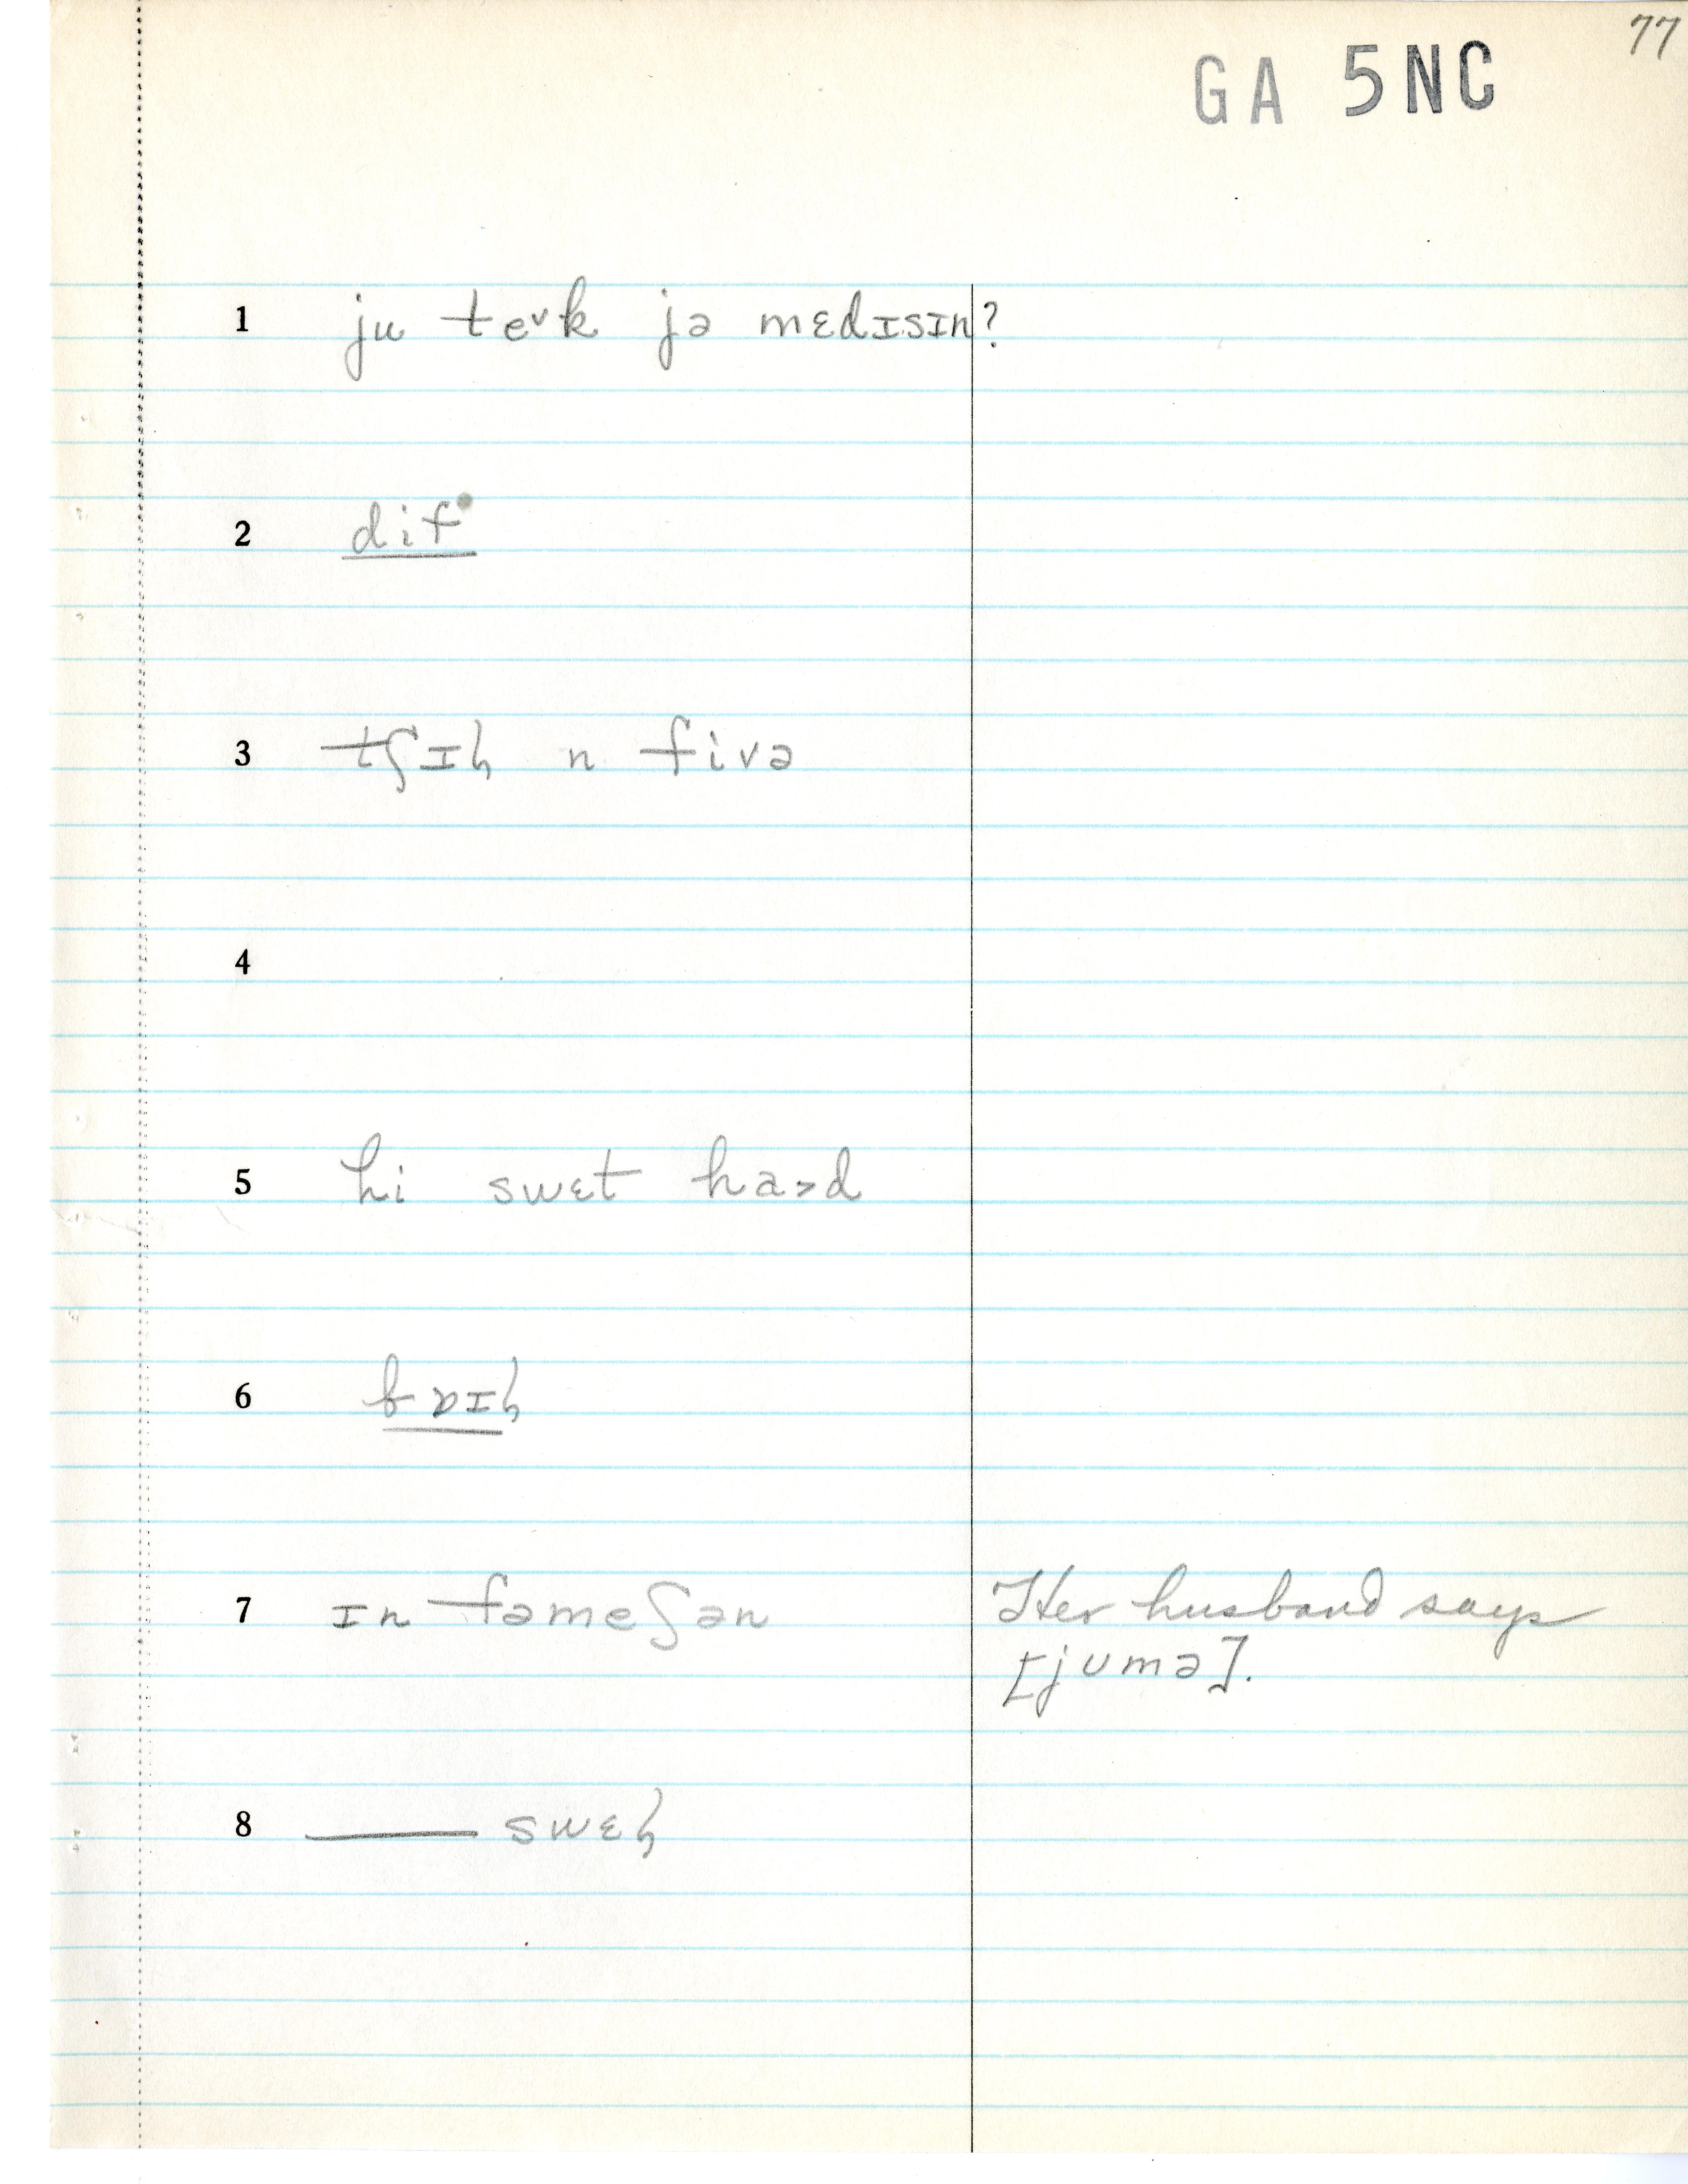 77
GA 5NC
1 ju te˅k jə mɛdɪsɪn?
2 dif
3 tʃɪɫ n fivə
4
5 hi swɛt ha˃d
6 bɒɪɫ
7 ɪnfəmeʃən Her husband says
[jumə].
8 —— swɛɫ